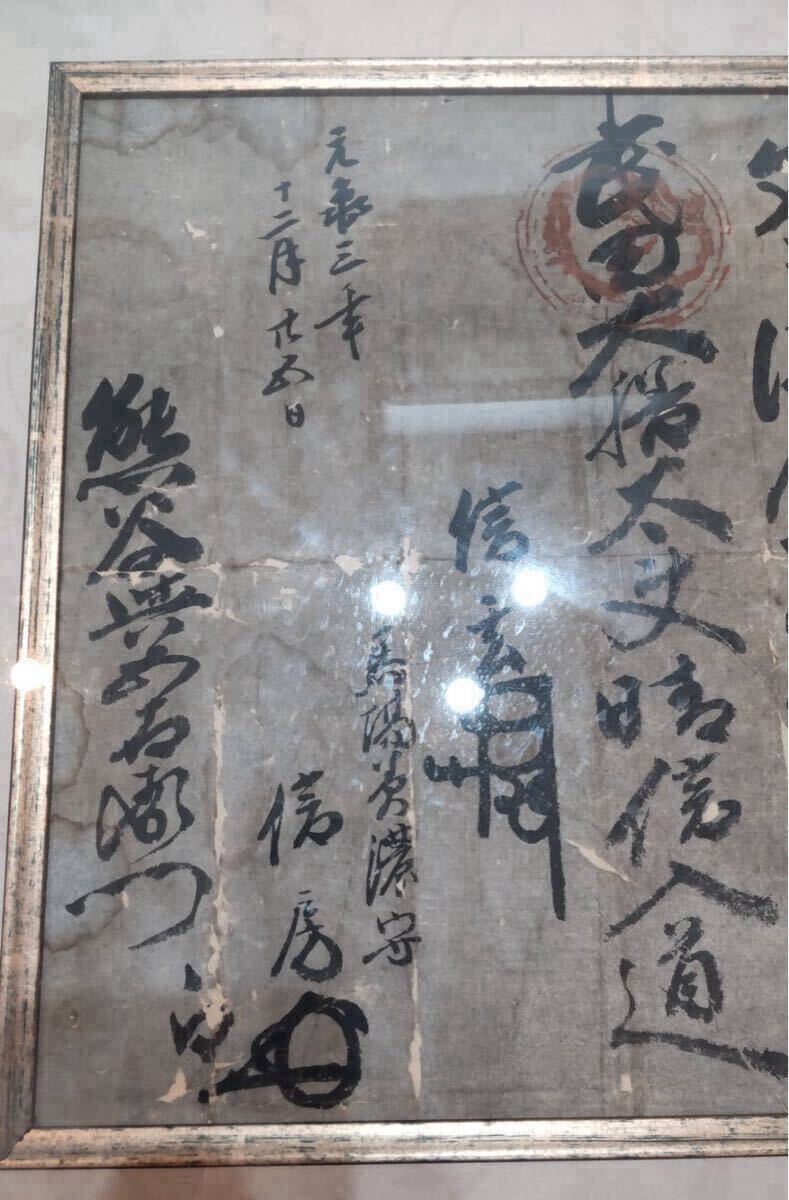 武田大膳太夫晴信入道
信玄
馬場美濃守
信房
元亀三年
十二月廿五日
熊谷與五右衛門